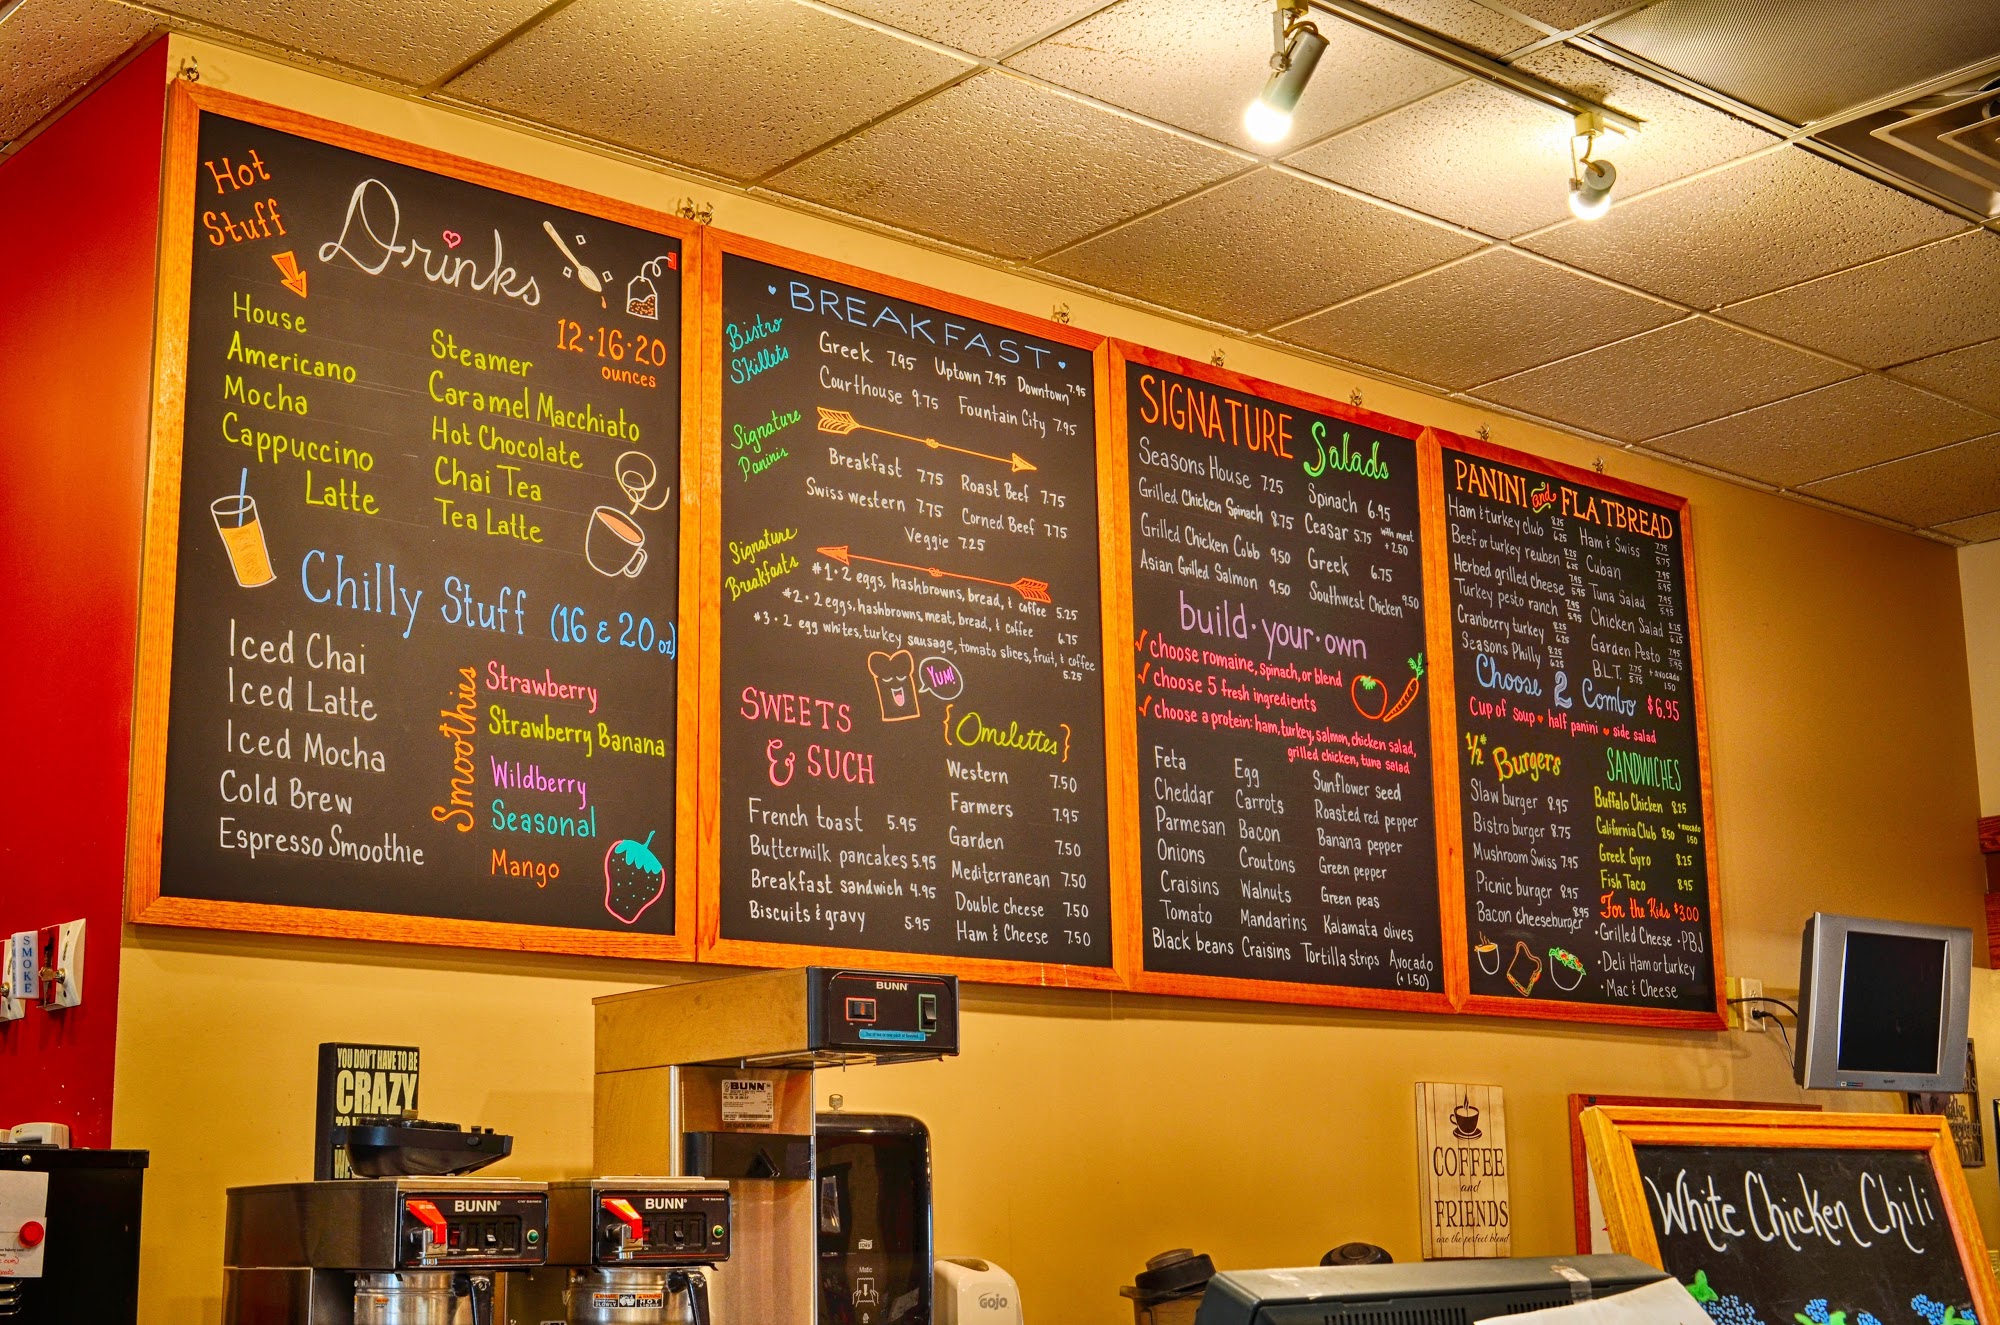 Hot
Stuff
Drinks
12·16·20
ounces
House
Americano
Mocha
Cappuccino
Latte
Steamer
Caramel Macchiato
Hot Chocolate
Chai Tea
Tea Latte
Chilly Stuff (16 & 20 oz)
Iced Chai
Iced Latte
Iced Mocha
Cold Brew
Espresso Smoothie
Smoothies
Strawberry
Strawberry Banana
Wildberry
Seasonal
Mango
BREAKFAST
Bistro
Skillets
Greek 7.95 Uptown 7.95 Downtown 7.95
Courthouse 9.75 Fountain City 7.95
Signature
Paninis
Breakfast 7.75 Roast Beef 7.75
Swiss western 7.75 Corned Beef 7.75
Veggie 7.25
Signature
Breakfasts
#1 · 2 eggs, hashbrowns, bread, & coffee 5.25
#2 · 2 eggs, hashbrowns, meat, bread, & coffee 6.75
#3 · 2 egg whites, turkey sausage, tomato slices, fruit, & coffee
5.25
YUM!
SWEETS
& SUCH
French toast 5.95
Buttermilk pancakes 5.95
Breakfast sandwich 4.95
Biscuits & gravy 5.95
{Omelettes}
Western 7.50
Farmers 7.95
Garden 7.50
Mediterranean 7.50
Double cheese 7.50
Ham & Cheese 7.50
SIGNATURE Salads
Seasons House 7.25
Grilled Chicken Spinach 8.75
Grilled Chicken Cobb 9.50
Asian Grilled Salmon 9.50
Spinach 6.95
Ceasar 5.75 with meat +2.50
Greek 6.75
Southwest Chicken 9.50
build·your·own
✓ choose romaine, spinach, or blend
✓ choose 5 fresh ingredients
✓ choose a protein: ham, turkey, salmon, chicken salad,
grilled chicken, tuna salad
Feta
Cheddar
Parmesan
Onions
Craisins
Tomato
Black beans
Egg
Carrots
Bacon
Croutons
Walnuts
Mandarins
Craisins
Sunflower seed
Roasted red pepper
Banana pepper
Green pepper
Green peas
Kalamata olives
Tortilla strips
Avocado
(+1.50)
PANINI and FLATBREAD
Ham & turkey club 8.25 6.25
Beef or turkey reuben 8.25 6.25
Herbed grilled cheese 7.95 5.95
Turkey pesto ranch 7.95 5.95
Cranberry turkey 8.25 6.25
Seasons Philly 8.25 6.25
Ham & Swiss 7.75 5.75
Cuban 7.95 5.95
Tuna Salad 7.95 5.95
Chicken Salad 8.25 6.25
Garden Pesto 7.95 5.95
B.L.T. 7.75 5.75 + avocado 1.50
Choose 2 Combo $6.95
Cup of soup ♥ half panini ♥ side salad
1/2# Burgers
Slaw burger 8.95
Bistro burger 8.75
Mushroom Swiss 7.95
Picnic burger 8.95
Bacon cheeseburger 8.95
SANDWICHES
Buffalo Chicken 8.25
California Club 8.50 + avocado 1.50
Greek Gyro 8.25
Fish Taco 8.95
For the Kids $3.00
·Grilled Cheese ·PBJ
·Deli Ham or turkey
·Mac & Cheese
SMOKE
YOU DON'T HAVE TO BE
CRAZY
BUNN
BUNN
BUNN
BUNN
Matic
GOJO
COFFEE
and
FRIENDS
are the perfect blend
White Chicken Chili